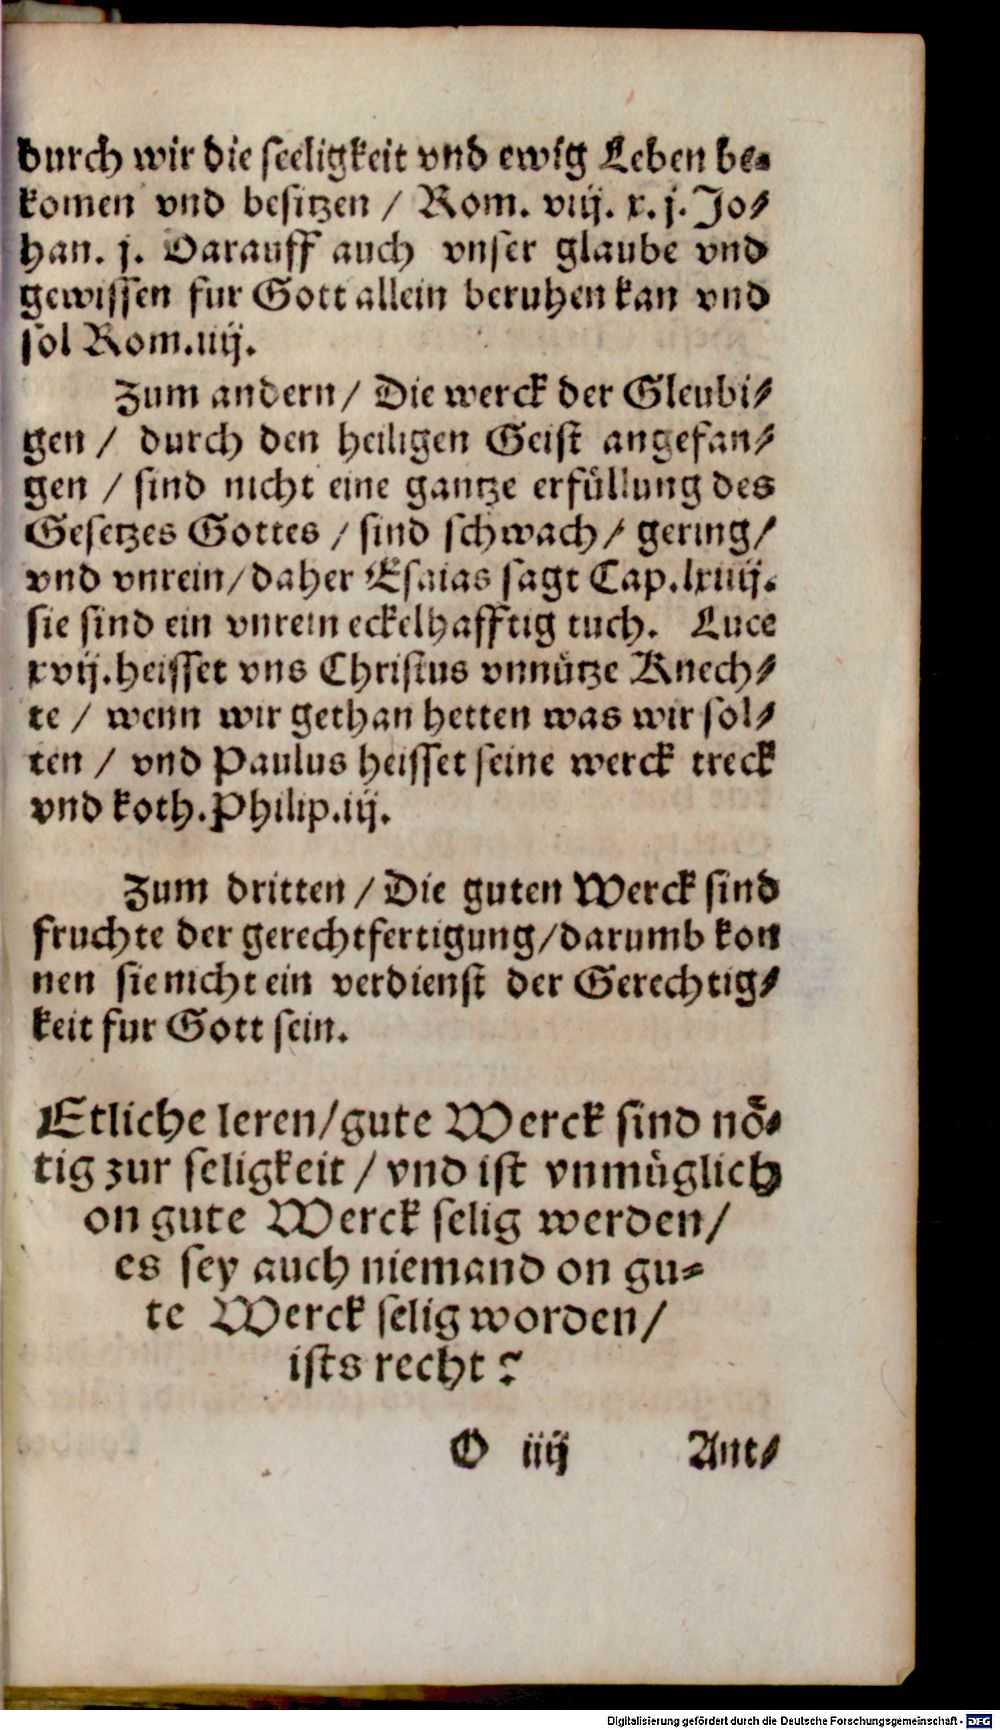 durch wir die seeligkeit vnd ewig Leben be-
komen vnd besitzen / Rom. viij. x. j. Jo-
han. j. Darauff auch vnser glaube vnd
gewissen fur Gott allein beruhen kan vnd
sol Rom. iiij.
Zum andern / Die werck der Gleubi-
gen / durch den heiligen Geist angefan-
gen / sind nicht eine gantze erfüllung des
Gesetzes Gottes / sind schwach / gering /
vnd vnrein / daher Esaias sagt Cap. lxiiij.
sie sind ein vnrein eckelhafftig tuch. Luce
xvij. heisset vns Christus vnnütze Knech-
te / wenn wir gethan hetten was wir sol-
ten / vnd Paulus heisset seine werck treck
vnd koth. Philip. iij.
Zum dritten / Die guten Werck sind
fruchte der gerechtfertigung / darumb kon
nen sie nicht ein verdienst der Gerechtig-
keit fur Gott sein.
Etliche leren / gute Werck sind nö-
tig zur seligkeit / vnd ist vnmüglich
on gute Werck selig werden /
es sey auch niemand on gu-
te Werck selig worden /
ists recht?
O iiij Ant-
Digitalisierung gefördert durch die Deutsche Forschungsgemeinschaft - DFG